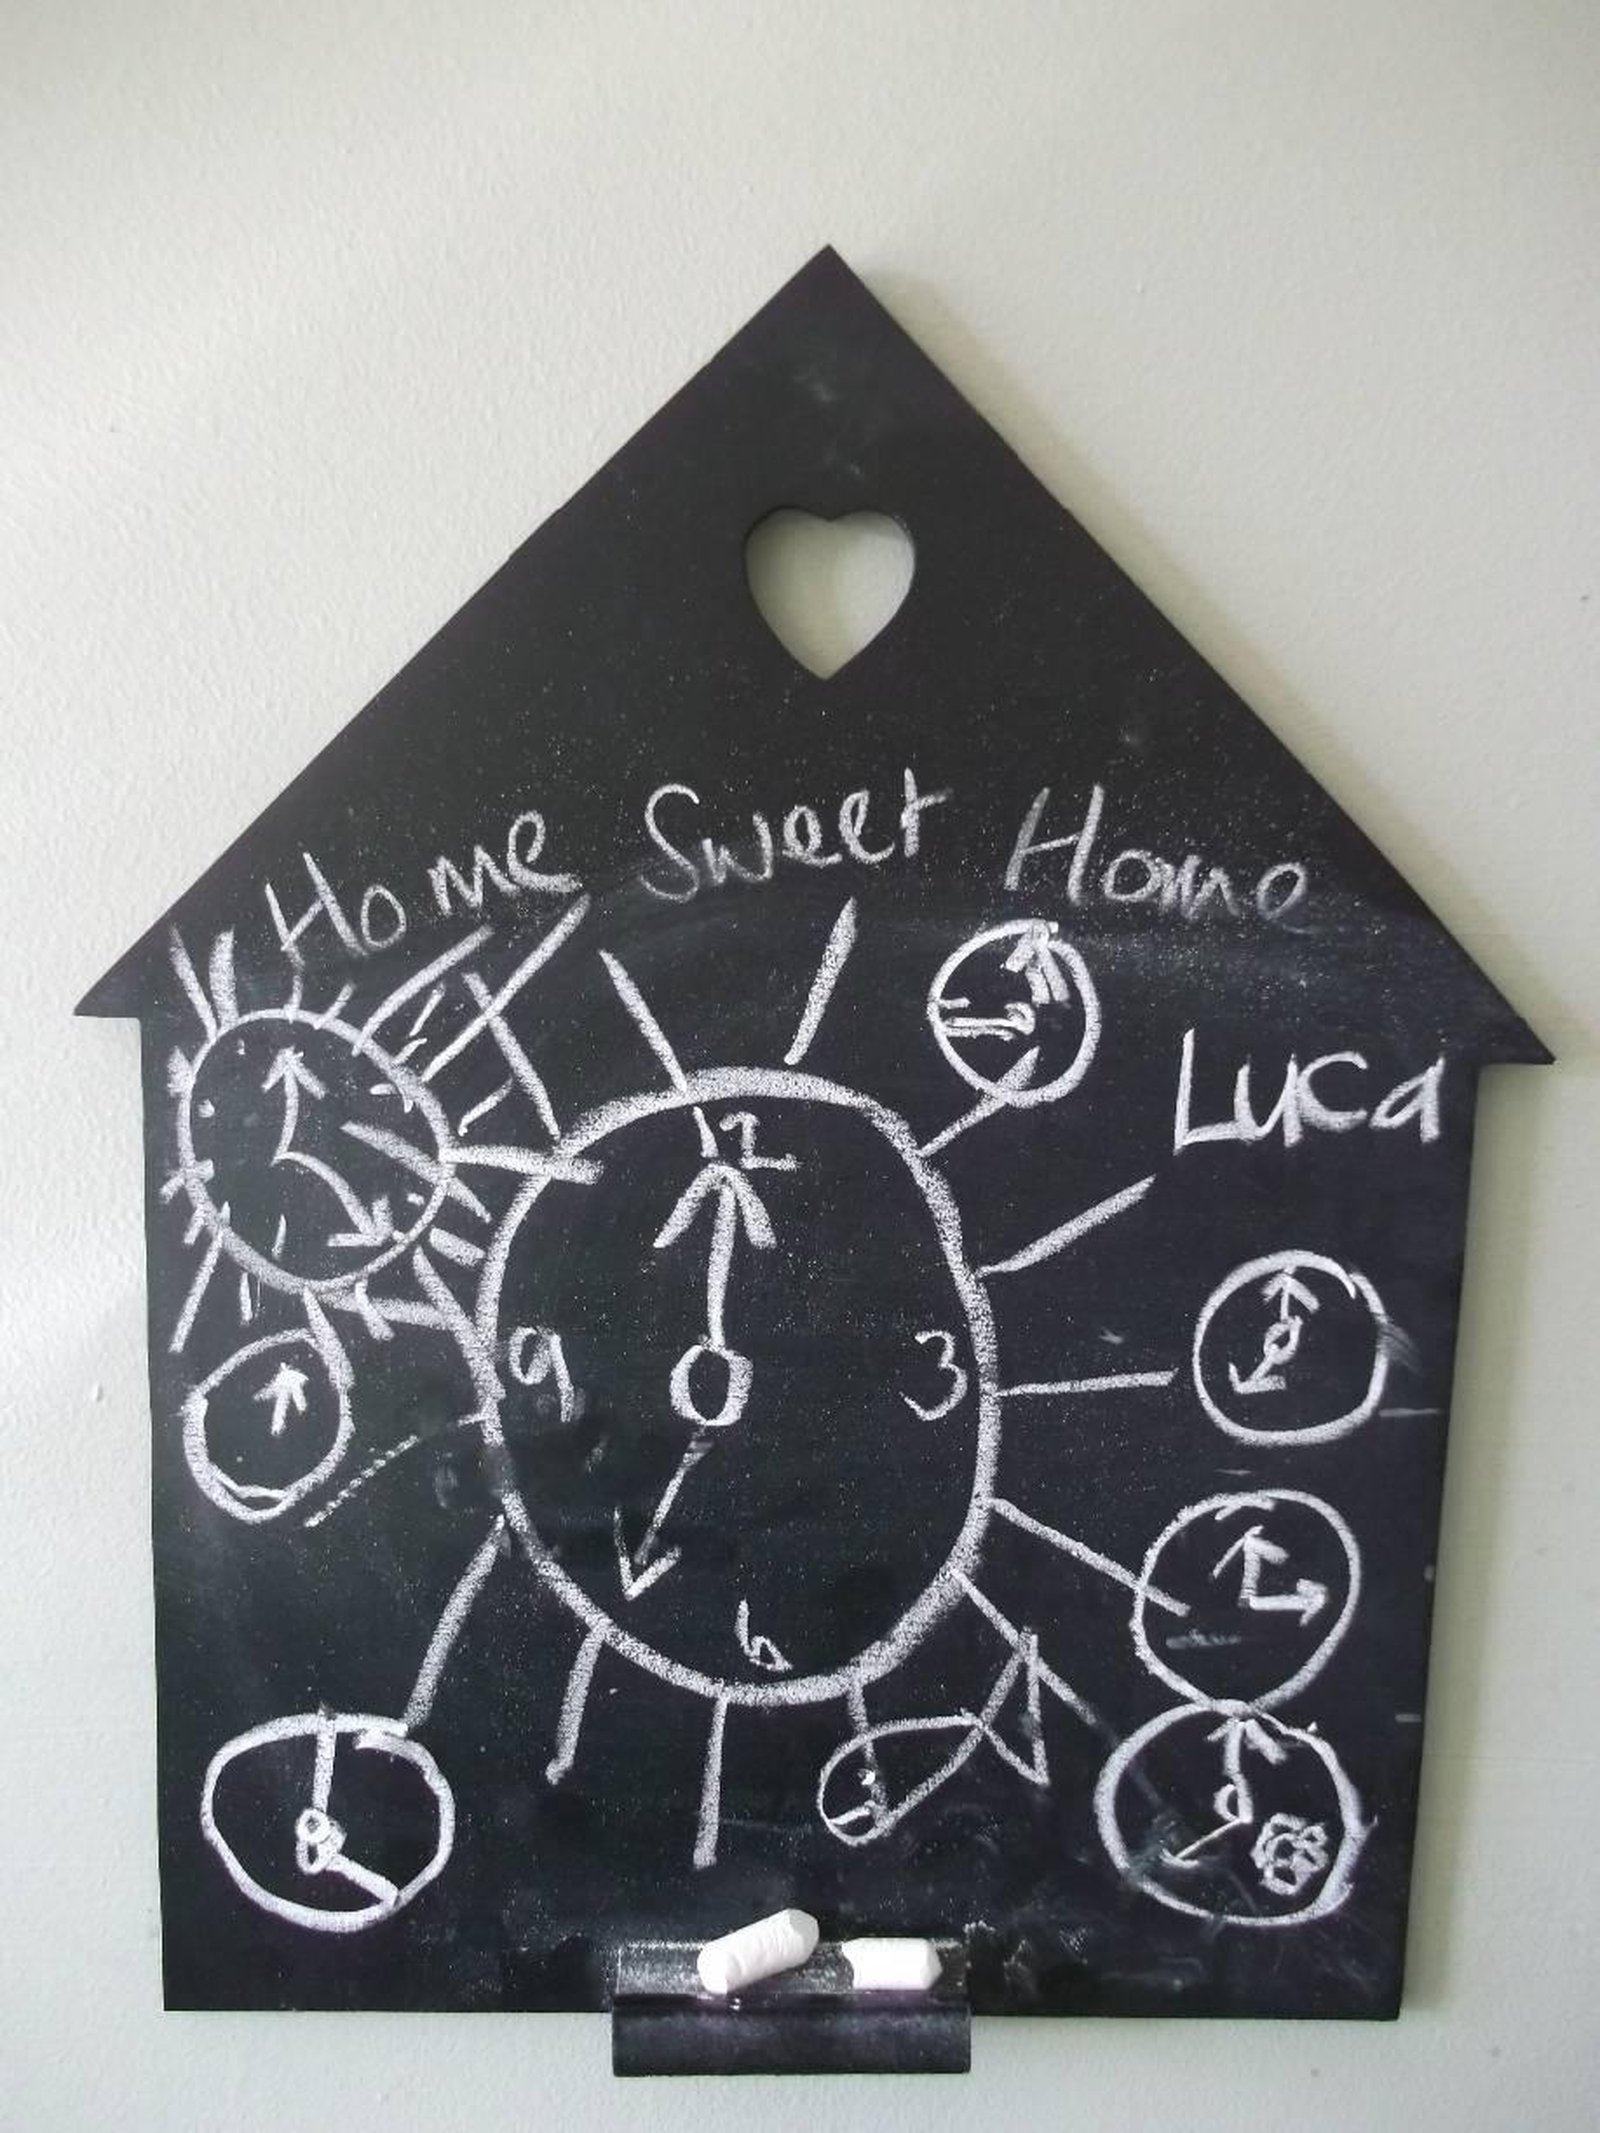 Home Sweet Home
Luca
12
9 3
6